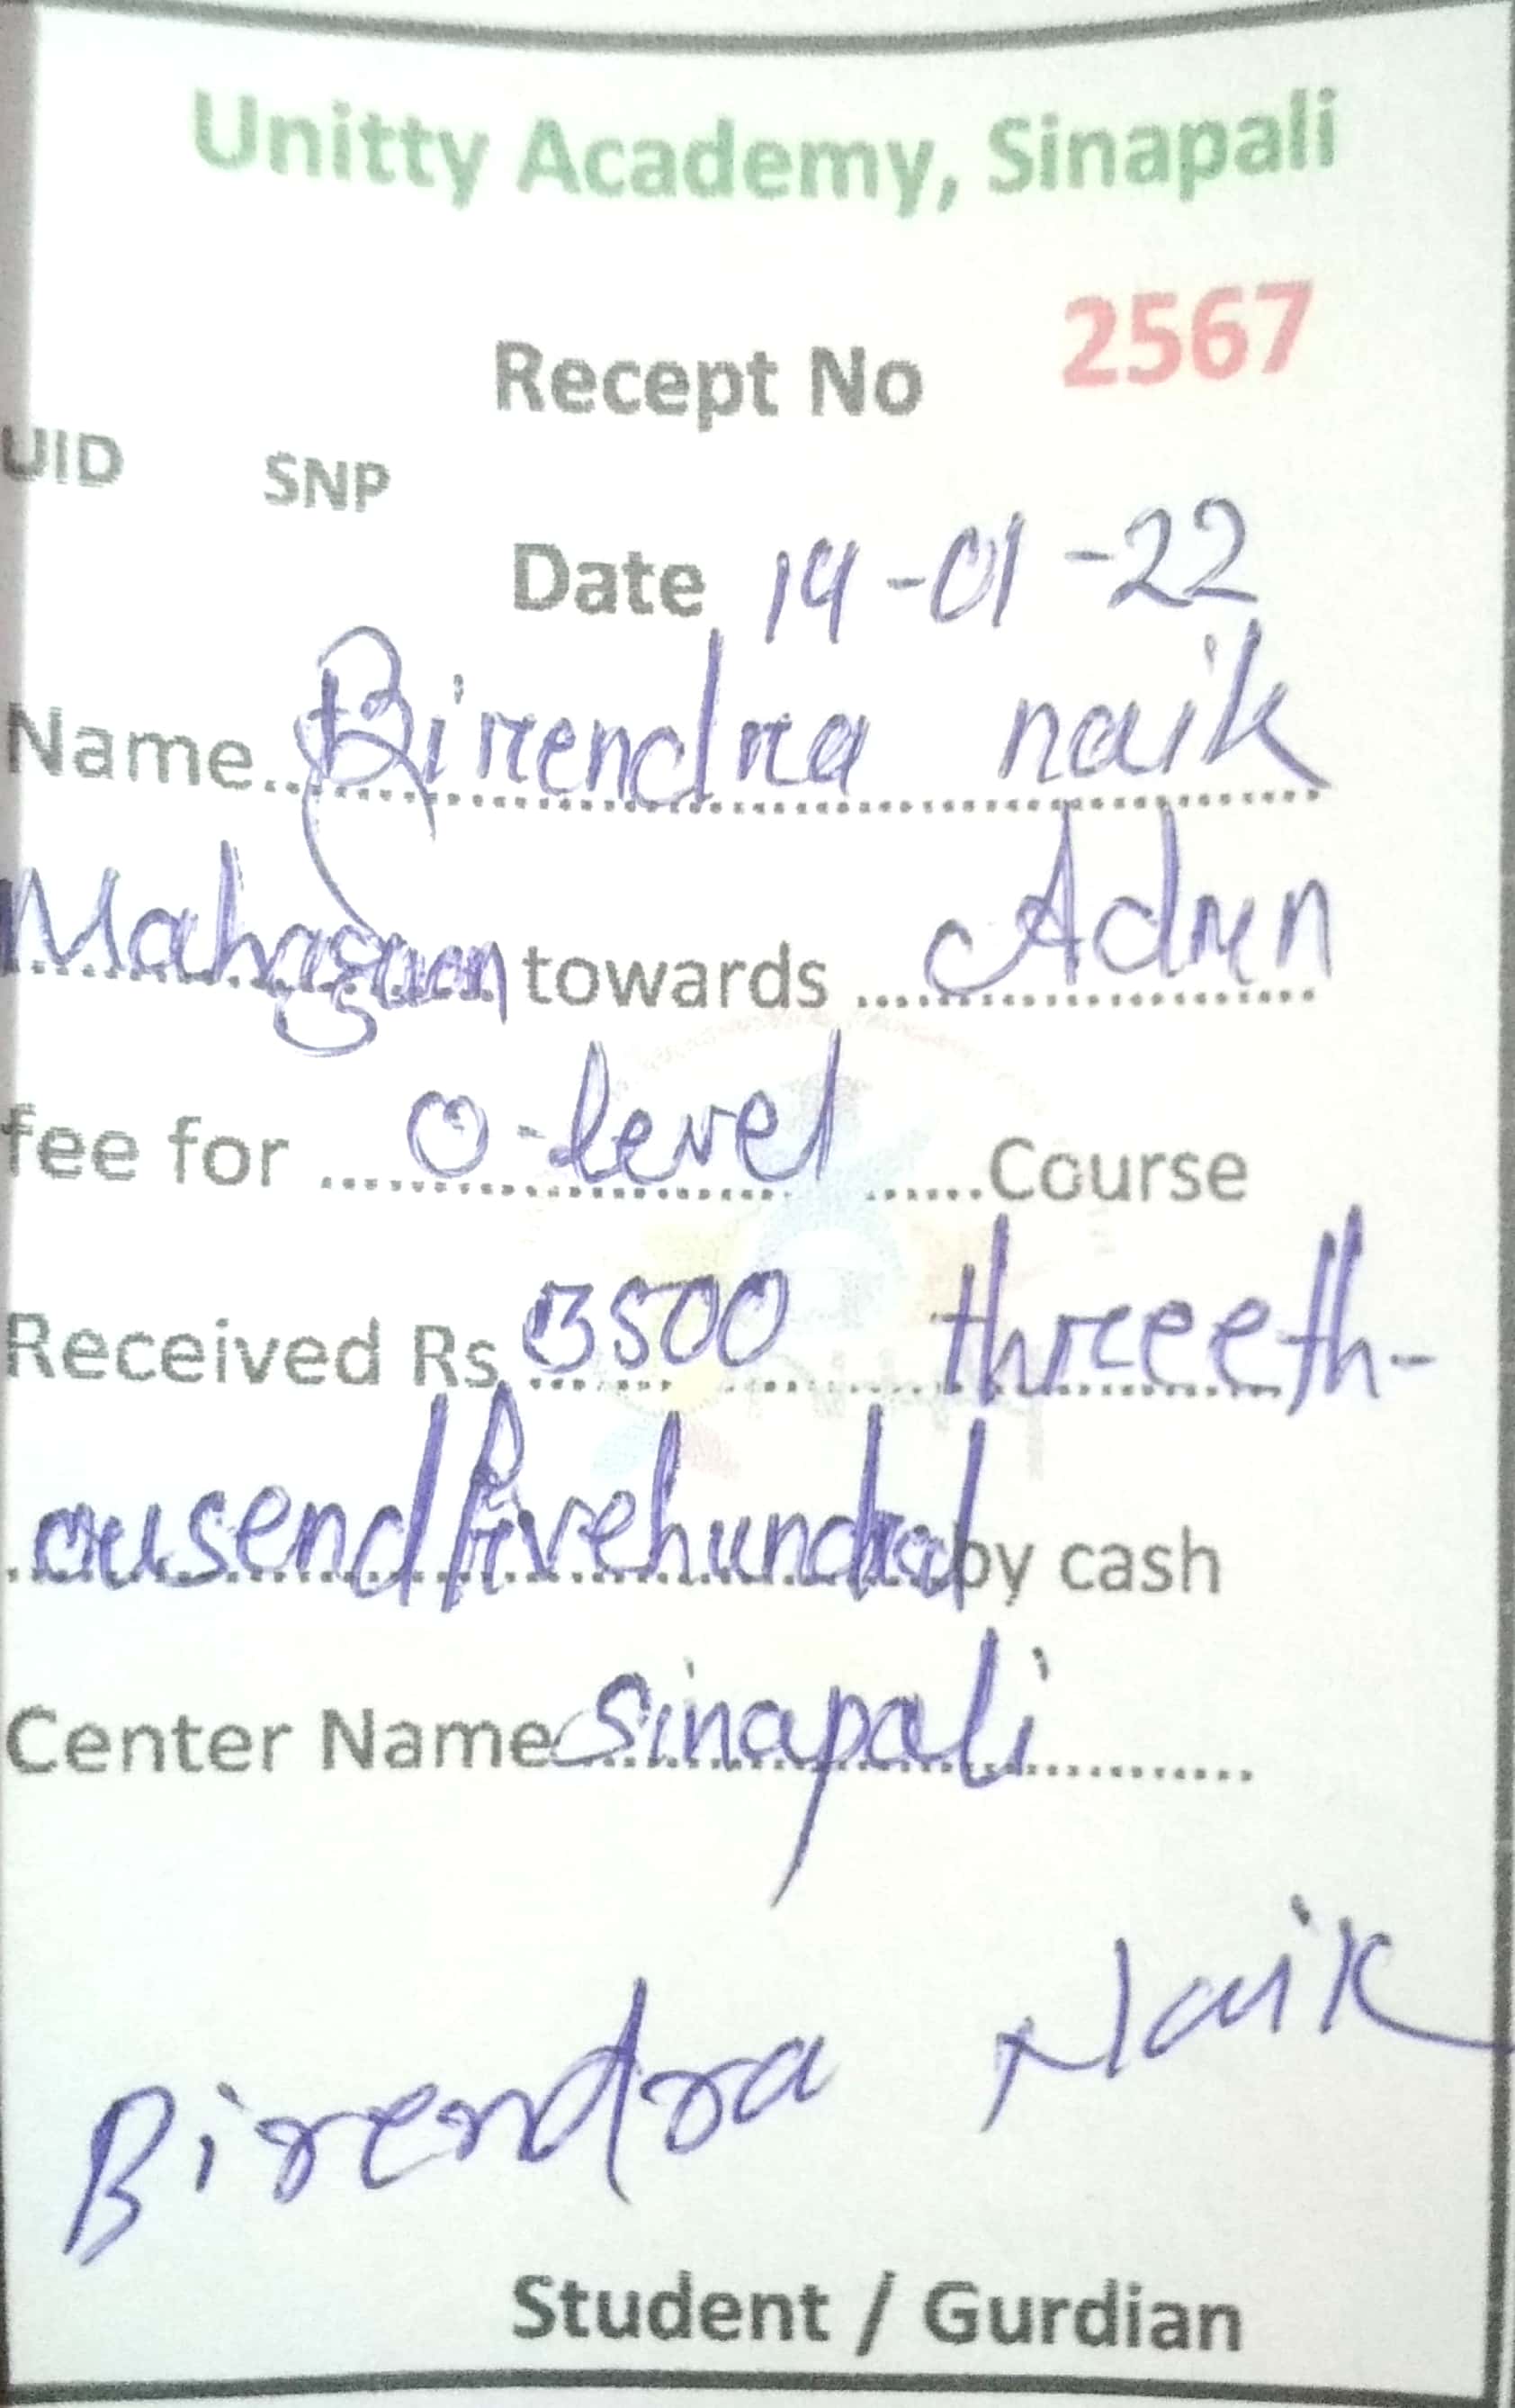 Unitty Academy, Sinapali
Recept No 2567
UID SNP
Date 14-01-22
Name..Birendra naik
Mahagaon towards ....Admn
fee for ....O-level ......Course
Received Rs 3500 threeth-
ousend fivehundred by cash
Center Name Sinapali
Birendra Naik
Student / Gurdian